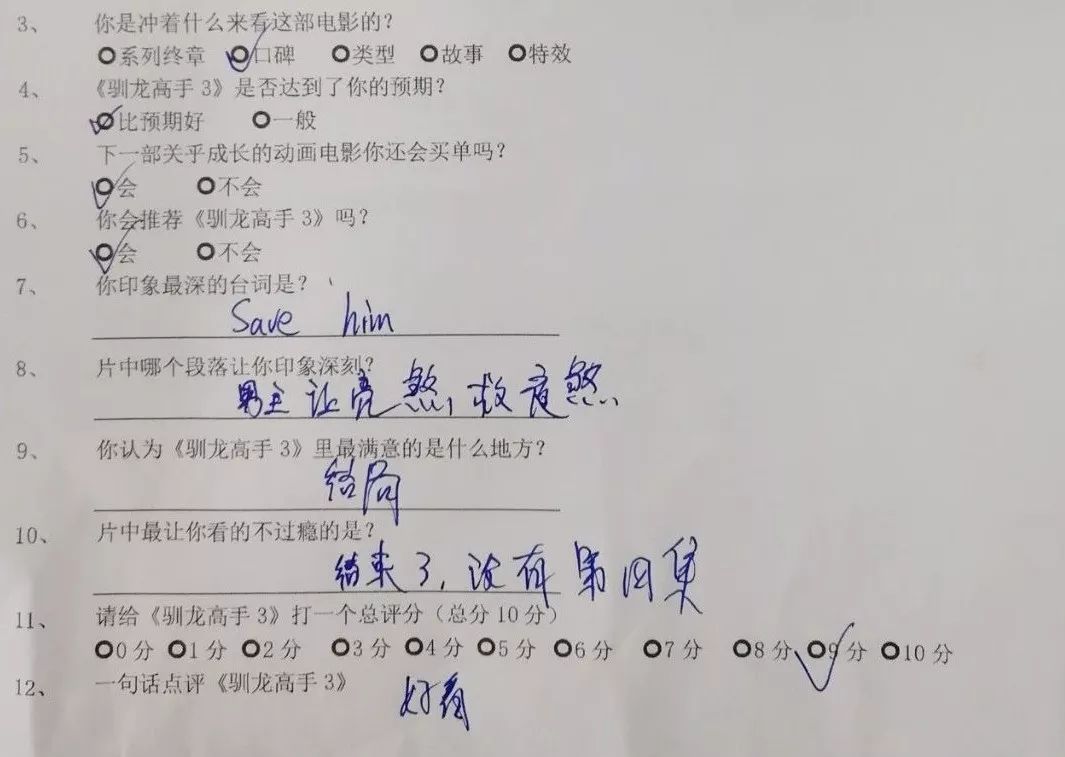 3、 你是冲着什么来看这部电影的？
系列终章 口碑 类型 故事 特效
4、 《驯龙高手3》是否达到了你的预期？
比预期好 一般
5、 下一部关乎成长的动画电影你还会买单吗？
会 不会
6、 你会推荐《驯龙高手3》吗？
会 不会
7、 你印象最深的台词是？
Save him
8、 片中哪个段落让你印象深刻？
男主让亮煞，救夜煞.
9、 你认为《驯龙高手3》里最满意的是什么地方？
结局
10、 片中最让你看的不过瘾的是？
结束了，没有第四集
11、 请给《驯龙高手3》打一个总评分（总分10分）
0分 1分 2分 3分 4分 5分 6分 7分 8分 9分 10分
12、 一句话点评《驯龙高手3》
好看